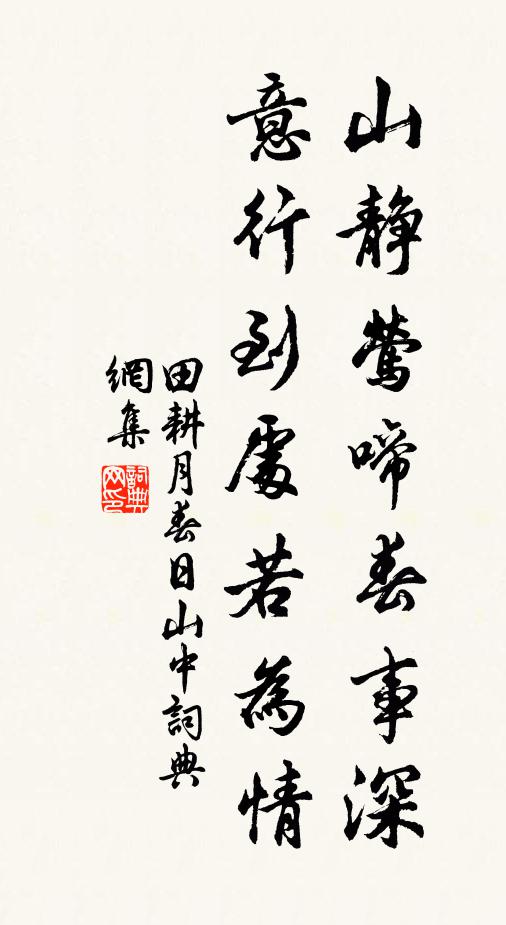 山靜鶯啼春事深
意行到處若為情
田耕月春日山中詞典
網集
詞典網印